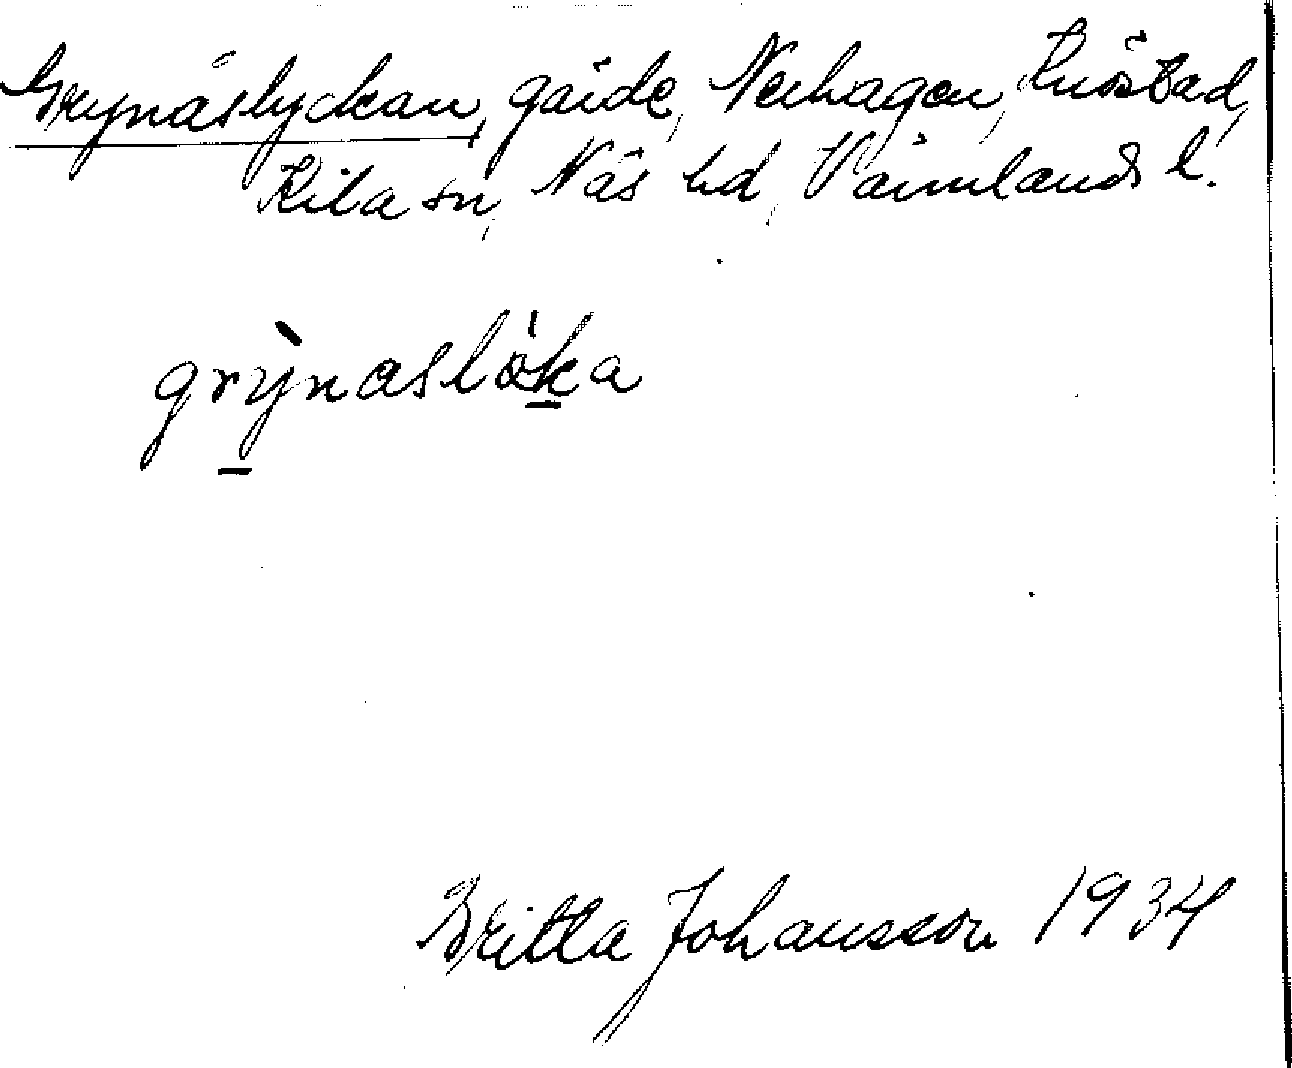 Grynäslyckan, gärde, Nerhagen, Knöstad,
Kila sn, Näs hd, Värmlands l.
grỳnaslö̀ka
Britta Johansson 1934